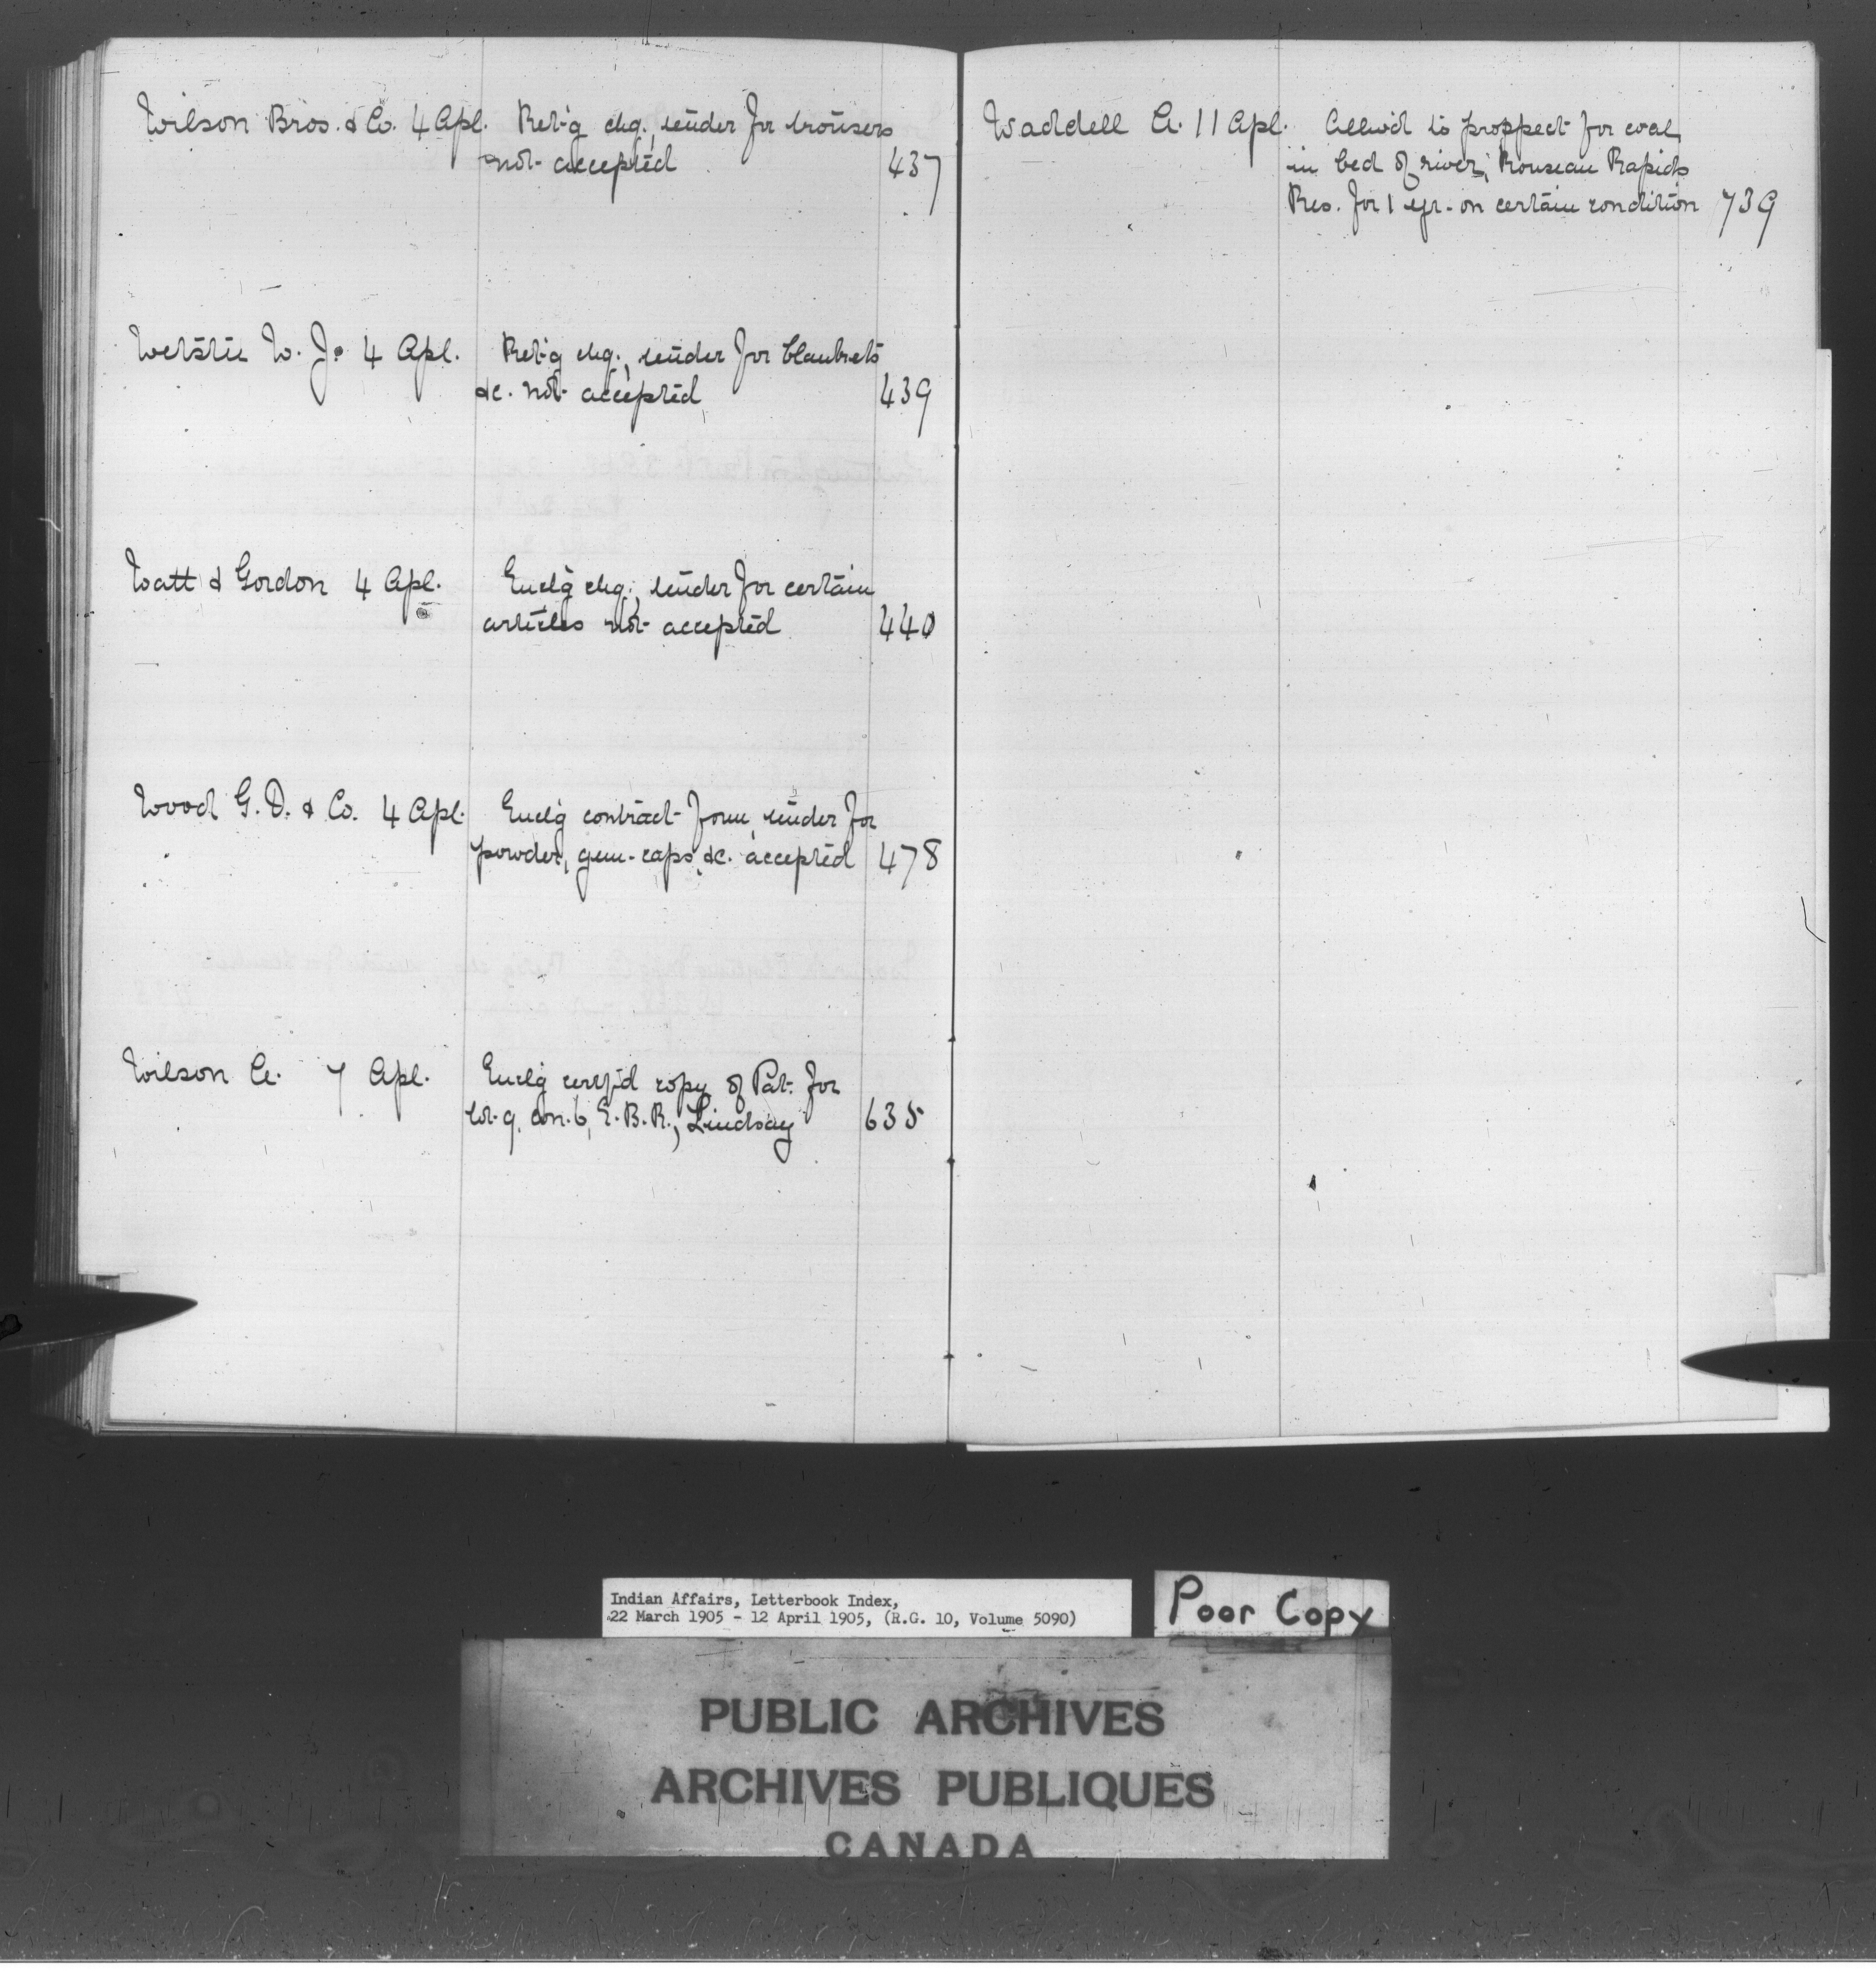 Wilson Bros. & Co. 4 Apl. Ret'g chq., tender for trousers
not accepted 437
W. J. 4 Apl. Ret'g chq., tender for blankets
&c. not accepted 439
Watt & Gordon 4 Apl. Encl'g chq., tender for certain
articles not accepted 440
Wood G. D. & Co. 4 Apl. Encl'g contract form, tender for
powder, gun-caps, &c. accepted 478
Wilson A. 7 Apl. Encl'g certf'd copy of Pat. for
lot 9, con. 6, E.B.R., Lindsay 635
Waddell A. 11 Apl. Allow'd to prospect for coal
in bed of river, Rouseau Rapids
Res. for 1 yr. on certain condition 739
Indian Affairs, Letterbook Index,
22 March 1905 - 12 April 1905, (R.G. 10, Volume 5090)
Poor Copy
PUBLIC ARCHIVES
ARCHIVES PUBLIQUES
CANADA